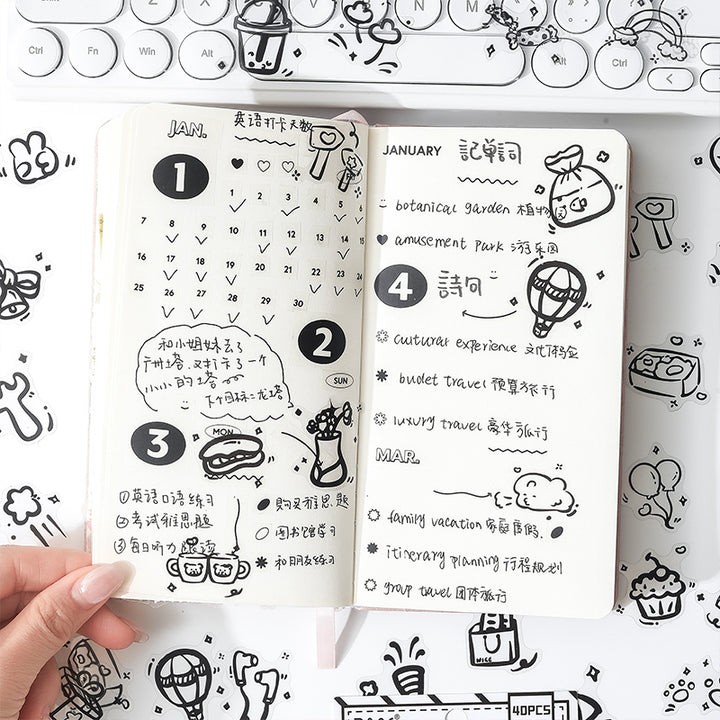 JAN.
英语打卡天数
1
1 2 3 4 5 6
7 8 9 10 11 12 13 14 15
16 17 18 19 20 21 22 23 24
25 26 27 28 29 30
2
SUN
和小姐妹去了
广州塔.又打卡了一个
小小的塔
下个目标:龙塔
3
MON
①英语口语练习
②考试雅思题
③每日听力 跟读
购买雅思题
图书馆学习
和朋友练习
JANUARY 記單詞
botanical garden 植物园
amusement park 游乐园
4 詩句
cultural experience 文化体验
budet travel 预算旅行
luxury travel 豪华旅行
MAR.
family vacation 家庭度假.
itinerary planning 行程规划
group travel 团体旅行
Ctrl Fn Win Alt
V B N M
Alt Ctrl
NICE
40PCS